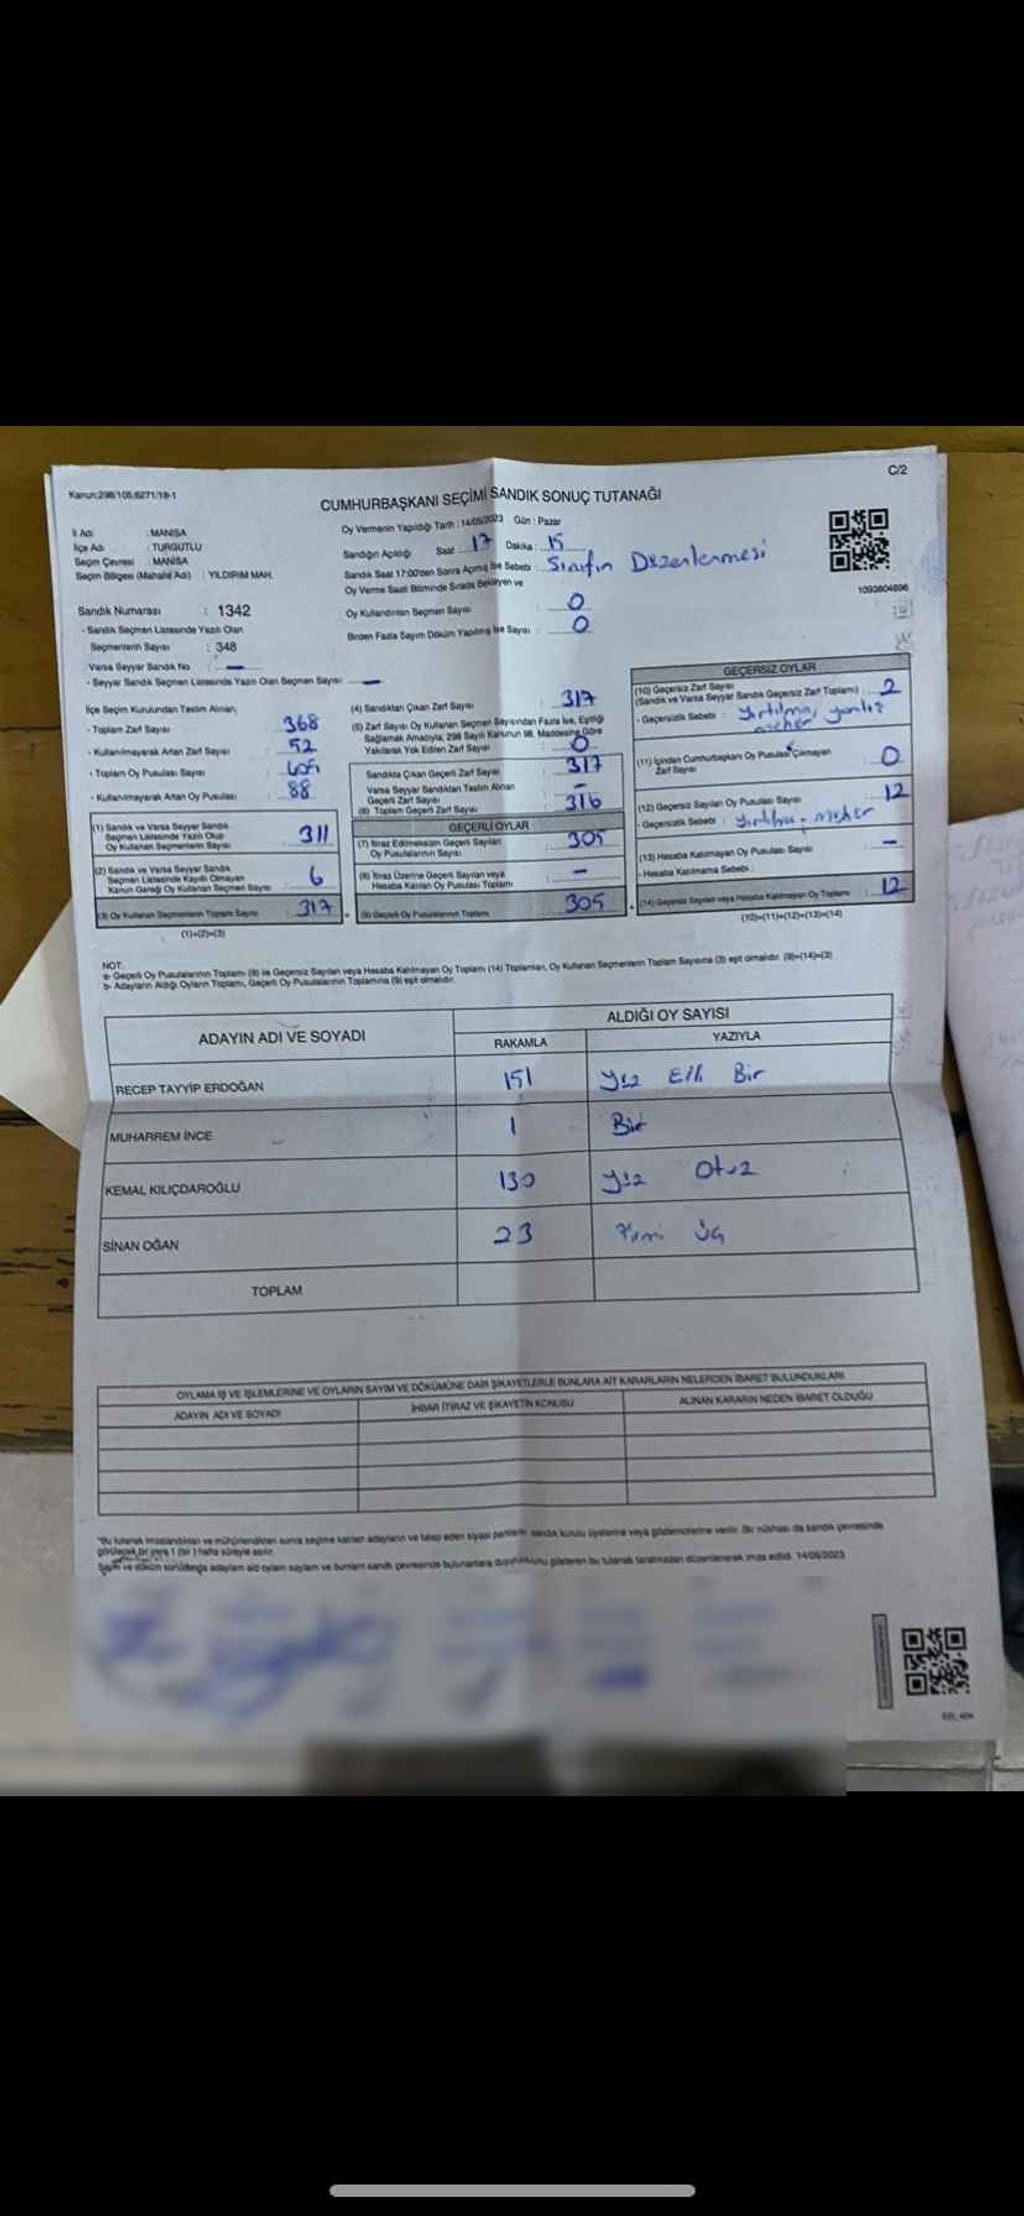 C/2
Kanun:298/105.6271/18-1
CUMHURBAŞKANI SEÇİMİ SANDIK SONUÇ TUTANAĞI
İl Adı : MANİSA
İlçe Adı : TURGUTLU
Seçim Çevresi : MANİSA
Seçim Bölgesi (Mahalle Adı) : YILDIRIM MAH.
Sandık Numarası : 1342
- Sandık Seçmen Listesinde Yazılı Olan
Seçmenlerin Sayısı : 348
Varsa Seyyar Sandık No : —
- Seyyar Sandık Seçmen Listesinde Yazılı Olan Seçmen Sayısı —
Oy Vermenin Yapıldığı Tarih : 14/05/2023 Gün : Pazar
Sandığın Açıldığı Saat 17 Dakika : 15
Sandık Saat 17:00'den Sonra Açılmış İse Sebebi : Sınıfın Düzenlenmesi
Oy Verme Saati Bitiminde Sırada Bekleyen ve
Oy Kullandırılan Seçmen Sayısı : 0
Birden Fazla Sayım Döküm Yapılmış İse Sayısı : 0
1093604896
İlçe Seçim Kurulundan Teslim Alınan;
- Toplam Zarf Sayısı : 368
- Kullanılmayarak Artan Zarf Sayısı : 52
- Toplam Oy Pusulası Sayısı :
- Kullanılmayarak Artan Oy Pusulası : 88
(1) Sandık ve Varsa Seyyar Sandık
Seçmen Listesinde Yazılı Olup
Oy Kullanan Seçmenlerin Sayısı : 311
(2) Sandık ve Varsa Seyyar Sandık
Seçmen Listesinde Kayıtlı Olmayan
Kanun Gereği Oy Kullanan Seçmen Sayısı : 6
(3) Oy Kullanan Seçmenlerin Toplam Sayısı 317
(1)+(2)=(3)
(4) Sandıktan Çıkan Zarf Sayısı : 317
(5) Zarf Sayısı Oy Kullanan Seçmen Sayısından Fazla İse, Eşitliği
Sağlamak Amacıyla, 298 Sayılı Kanunun 98. Maddesine Göre
Yakılarak Yok Edilen Zarf Sayısı : 0
Sandıkta Çıkan Geçerli Zarf Sayısı : 317
Varsa Seyyar Sandıktan Teslim Alınan
Geçerli Zarf Sayısı : -
(6) Toplam Geçerli Zarf Sayısı : 316
GEÇERLİ OYLAR
(7) İtiraz Edilmeksizin Geçerli Sayılan
Oy Pusulalarının Sayısı : 305
(8) İtiraz Üzerine Geçerli Sayılan veya
Hesaba Katılan Oy Pusulası Toplamı : -
(9) Geçerli Oy Pusulalarının Toplamı 305
GEÇERSİZ OYLAR
(10) Geçersiz Zarf Sayısı
(Sandık ve Varsa Seyyar Sandık Geçersiz Zarf Toplamı) : 2
- Geçersizlik Sebebi : yırtılma, yanlış
mühür
(11) İçinden Cumhurbaşkanı Oy Pusulası Çıkmayan
Zarf Sayısı : 0
(12) Geçersiz Sayılan Oy Pusulası Sayısı : 12
- Geçersizlik Sebebi : yırtılma - mühür
(13) Hesaba Katılmayan Oy Pusulası Sayısı : -
- Hesaba Katılmama Sebebi :
(14) Geçersiz Sayılan veya Hesaba Katılmayan Oy Toplamı : 12
(10)+(11)+(12)+(13)=(14)
NOT:
a- Geçerli Oy Pusulalarının Toplamı (9) ile Geçersiz Sayılan veya Hesaba Katılmayan Oy Toplamı (14) Toplamları, Oy Kullanan Seçmenlerin Toplam Sayısına (3) eşit olmalıdır. (9)+(14)=(3)
b- Adayların Aldığı Oyların Toplamı, Geçerli Oy Pusulalarının Toplamına (9) eşit olmalıdır.
ADAYIN ADI VE SOYADI
ALDIĞI OY SAYISI
RAKAMLA YAZIYLA
RECEP TAYYİP ERDOĞAN 151 Yüz Elli Bir
MUHARREM İNCE 1 Bir
KEMAL KILIÇDAROĞLU 130 Yüz Otuz
SİNAN OĞAN 23 Yirmi Üç
TOPLAM
OYLAMA İŞ VE İŞLEMLERİNE VE OYLARIN SAYIM VE DÖKÜMÜNE DAİR ŞİKAYETLERLE BUNLARA AİT KARARLARIN NELERDEN İBARET BULUNDUKLARI
ADAYIN ADI VE SOYADI İHBAR İTİRAZ VE ŞİKAYETİN KONUSU ALINAN KARARIN NEDEN İBARET OLDUĞU
*Bu tutanak imzalandıktan ve mühürlendikten sonra seçime katılan adayların ve talep eden siyasi partilerin sandık kurulu üyelerine veya gözlemcilerine verilir. Bir nüshası da sandık çevresinde
görülecek bir yere 1 (bir) hafta süreyle asılır.